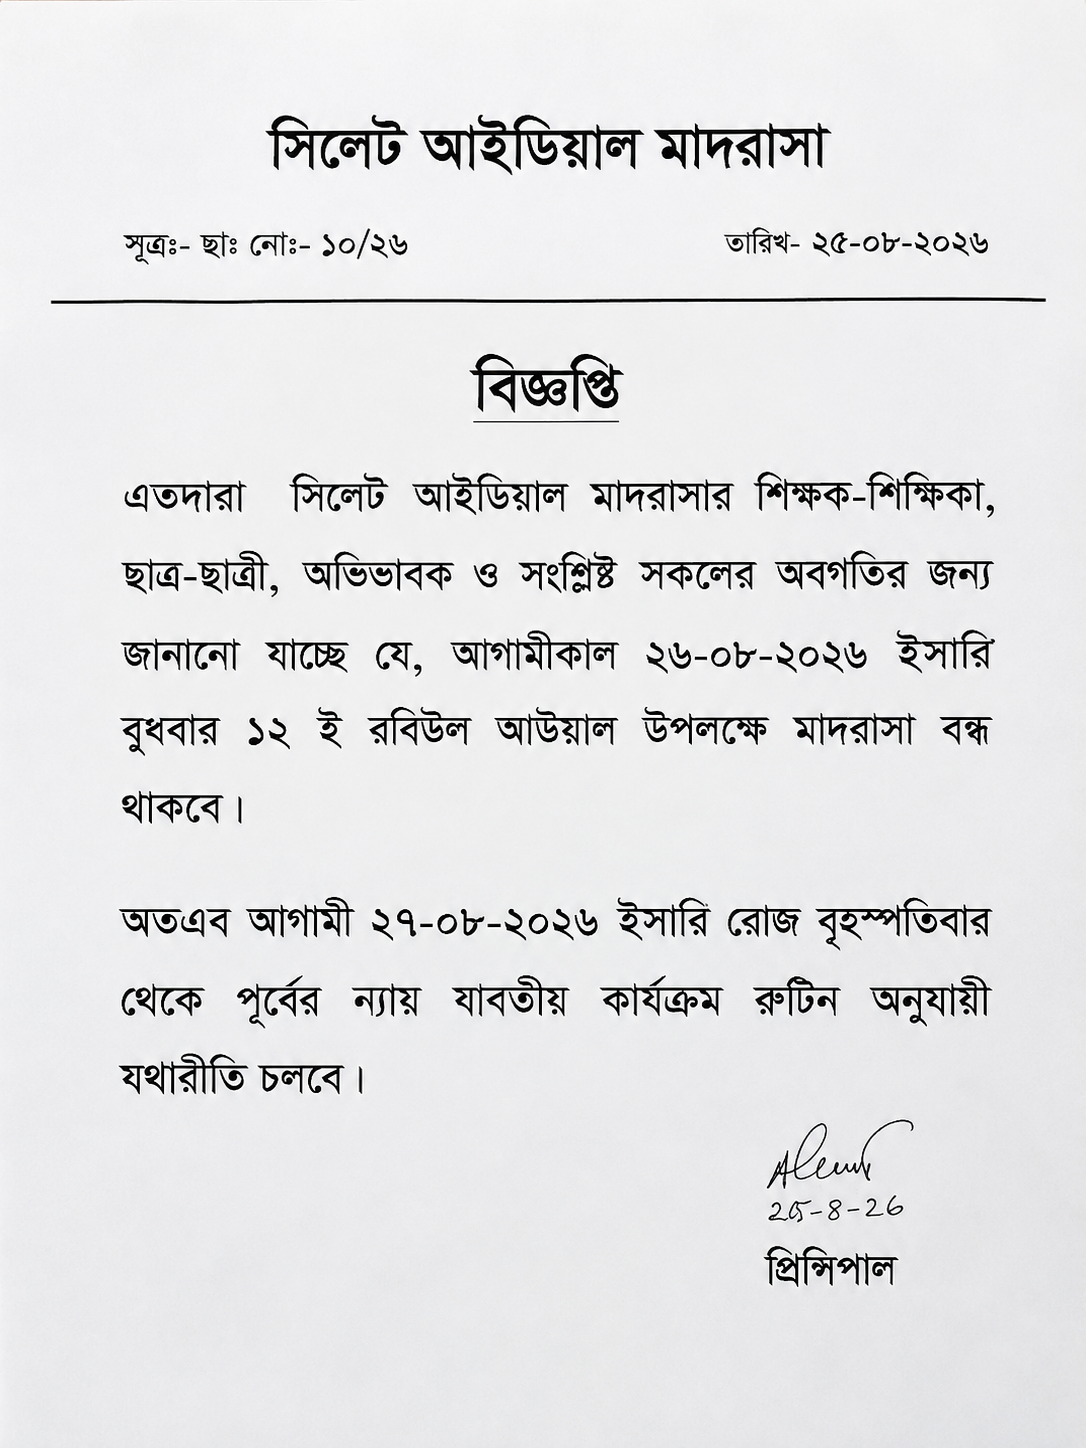 সিলেট আইডিয়াল মাদরাসা
সূত্রঃ- ছাঃ নোঃ- ১০/২৬ তারিখ- ২৫-০৮-২০২৬
বিজ্ঞপ্তি
এতদারা সিলেট আইডিয়াল মাদরাসার শিক্ষক-শিক্ষিকা,
ছাত্র-ছাত্রী, অভিভাবক ও সংশ্লিষ্ট সকলের অবগতির জন্য
জানানো যাচ্ছে যে, আগামীকাল ২৬-০৮-২০২৬ ইসারি
বুধবার ১২ ই রবিউল আউয়াল উপলক্ষে মাদরাসা বন্ধ
থাকবে।
অতএব আগামী ২৭-০৮-২০২৬ ইসারি রোজ বৃহস্পতিবার
থেকে পূর্বের ন্যায় যাবতীয় কার্যক্রম রুটিন অনুযায়ী
যথারীতি চলবে।
25-8-26
প্রিন্সিপাল